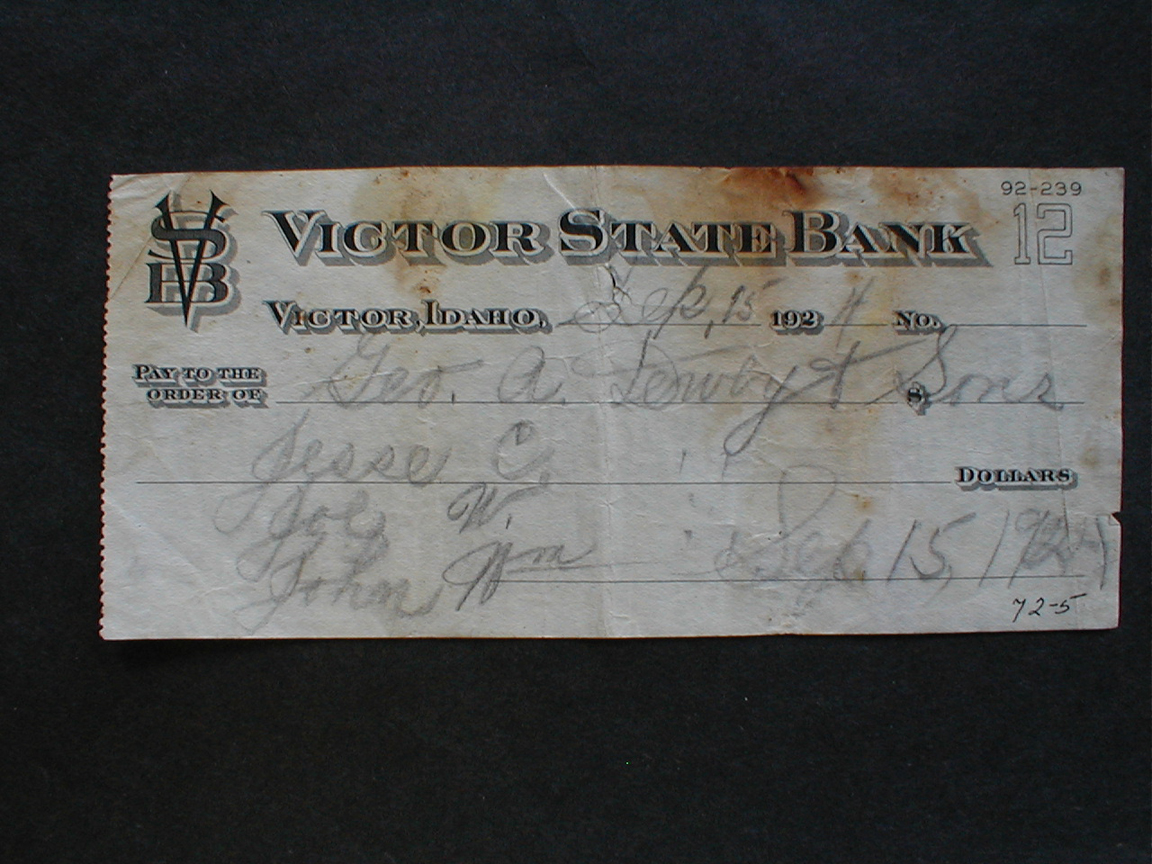 92-239
12
VSB
VICTOR STATE BANK
VICTOR, IDAHO, Sep, 15 192 4 No.
PAY TO THE ORDER OF Geo. A. & $ Sons
Jesse C,
DOLLARS
Joe W.
John Wm Sep 15, 1924
72-5